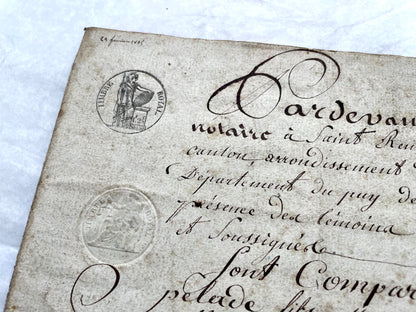 TIMBRE ROYAL
Pardevant
notaire à Saint Remi
canton, arrondissement
Département du puy de
présence des témoins
et Soussignés
Sont Compar
Pelade fils